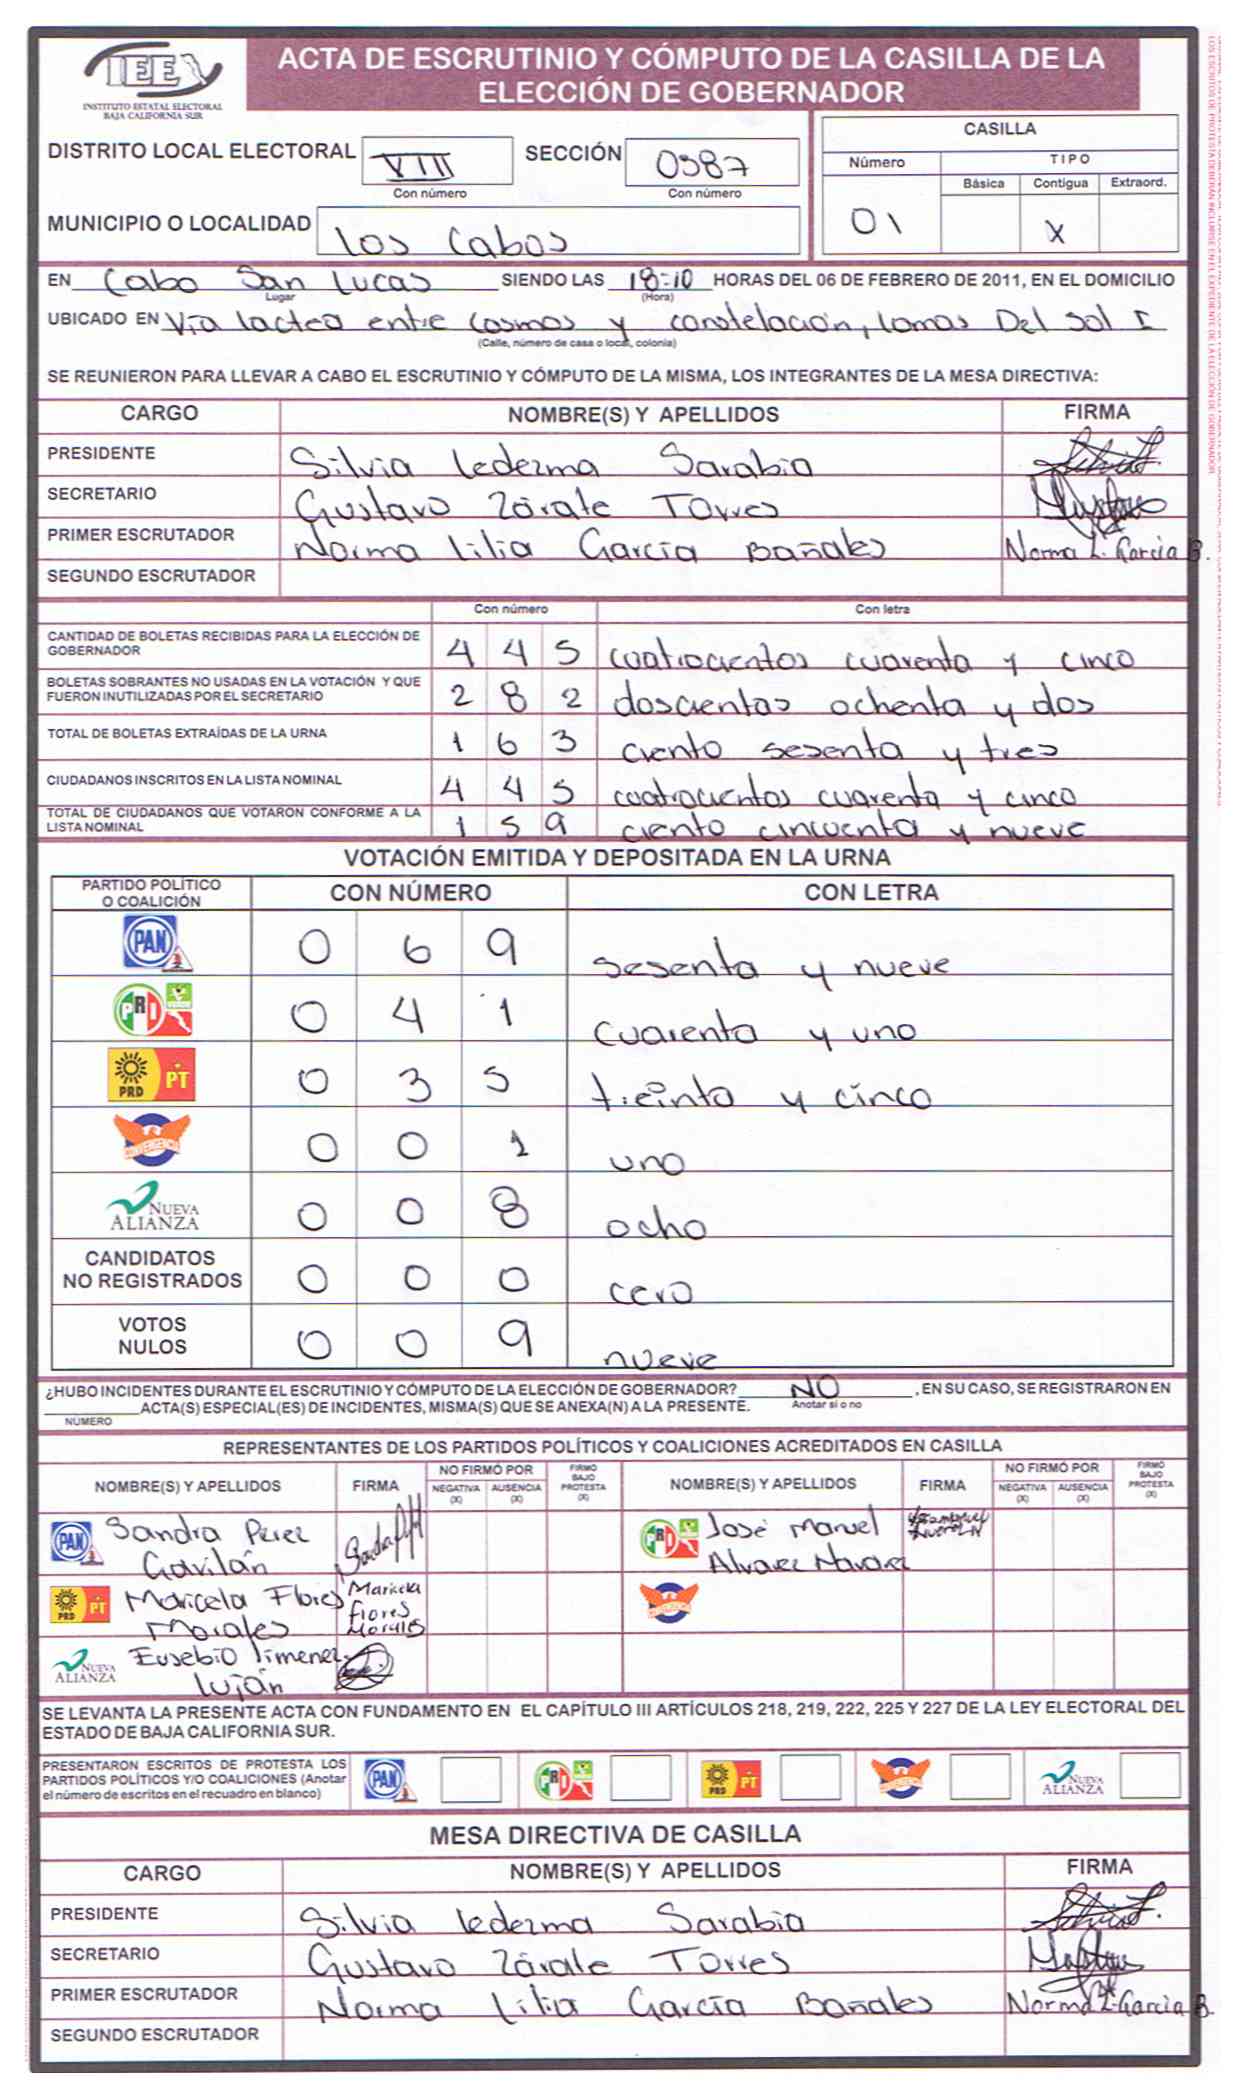 IEE
INSTITUTO ESTATAL ELECTORAL
BAJA CALIFORNIA SUR
ACTA DE ESCRUTINIO Y CÓMPUTO DE LA CASILLA DE LA
ELECCIÓN DE GOBERNADOR
DISTRITO LOCAL ELECTORAL VIII SECCIÓN 0387
Con número Con número
MUNICIPIO O LOCALIDAD Los Cabos
CASILLA
Número TIPO
Básica Contigua Extraord.
01 X
EN Cabo San Lucas SIENDO LAS 18:10 HORAS DEL 06 DE FEBRERO DE 2011, EN EL DOMICILIO
Lugar (Hora)
UBICADO EN Vía lactea entre cosmos y constelación, lomas Del Sol I
(Calle, número de casa o local, colonia)
SE REUNIERON PARA LLEVAR A CABO EL ESCRUTINIO Y CÓMPUTO DE LA MISMA, LOS INTEGRANTES DE LA MESA DIRECTIVA:
CARGO NOMBRE(S) Y APELLIDOS FIRMA
PRESIDENTE Silvia Ledezma Sarabia
SECRETARIO Gustavo Zárate Torres
PRIMER ESCRUTADOR Norma Lilia García Bañales Norma L. Garcia B.
SEGUNDO ESCRUTADOR
Con número Con letra
CANTIDAD DE BOLETAS RECIBIDAS PARA LA ELECCIÓN DE
GOBERNADOR 4 4 5 cuatrocientos cuarenta y cinco
BOLETAS SOBRANTES NO USADAS EN LA VOTACIÓN Y QUE
FUERON INUTILIZADAS POR EL SECRETARIO 2 8 2 doscientas ochenta y dos
TOTAL DE BOLETAS EXTRAÍDAS DE LA URNA 1 6 3 ciento sesenta y tres
CIUDADANOS INSCRITOS EN LA LISTA NOMINAL 4 4 5 cuatrocientos cuarenta y cinco
TOTAL DE CIUDADANOS QUE VOTARON CONFORME A LA
LISTA NOMINAL 1 5 9 ciento cincuenta y nueve
VOTACIÓN EMITIDA Y DEPOSITADA EN LA URNA
PARTIDO POLÍTICO
O COALICIÓN CON NÚMERO CON LETRA
PAN 0 6 9 sesenta y nueve
PRI VERDE 0 4 1 cuarenta y uno
PRD PT 0 3 5 treinta y cinco
CONVERGENCIA 0 0 1 uno
NUEVA
ALIANZA 0 0 8 ocho
CANDIDATOS
NO REGISTRADOS 0 0 0 cero
VOTOS
NULOS 0 0 9 nueve
¿HUBO INCIDENTES DURANTE EL ESCRUTINIO Y CÓMPUTO DE LA ELECCIÓN DE GOBERNADOR? NO , EN SU CASO, SE REGISTRARON EN
Anotar sí o no
ACTA(S) ESPECIAL(ES) DE INCIDENTES, MISMA(S) QUE SE ANEXA(N) A LA PRESENTE.
NÚMERO
REPRESENTANTES DE LOS PARTIDOS POLÍTICOS Y COALICIONES ACREDITADOS EN CASILLA
NOMBRE(S) Y APELLIDOS FIRMA NO FIRMÓ POR NEGATIVA (X) AUSENCIA (X) FIRMÓ BAJO PROTESTA (X) NOMBRE(S) Y APELLIDOS FIRMA NO FIRMÓ POR NEGATIVA (X) AUSENCIA (X) FIRMÓ BAJO PROTESTA (X)
PAN Sandra Pérez
Gavilán
PRI José Manuel
Alvarez Narvaez
PRD PT Maricela Flores
Morales
Maricela
Flores
Morales
CONVERGENCIA
NUEVA
ALIANZA Eusebio Jimenez
Luján
SE LEVANTA LA PRESENTE ACTA CON FUNDAMENTO EN EL CAPÍTULO III ARTÍCULOS 218, 219, 222, 225 Y 227 DE LA LEY ELECTORAL DEL
ESTADO DE BAJA CALIFORNIA SUR.
PRESENTARON ESCRITOS DE PROTESTA LOS
PARTIDOS POLÍTICOS Y/O COALICIONES (Anotar
el número de escritos en el recuadro en blanco)
PAN PRI PRD PT CONVERGENCIA NUEVA ALIANZA
MESA DIRECTIVA DE CASILLA
CARGO NOMBRE(S) Y APELLIDOS FIRMA
PRESIDENTE Silvia Ledezma Sarabia
SECRETARIO Gustavo Zárate Torres
PRIMER ESCRUTADOR Norma Lilia García Bañales Norma L. Garcia B.
SEGUNDO ESCRUTADOR
LOS ESCRITOS DE PROTESTA DEBERÁN INCLUIRSE EN EL EXPEDIENTE DE LA ELECCIÓN DE GOBERNADOR.